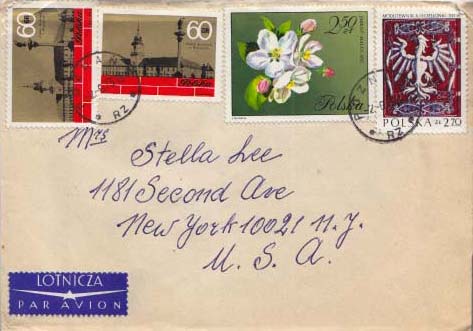 60 GR
Polska
60 GR
Polska
2.50 ZŁ
Polska
POLSKA ZŁ 2.70
POZNAŃ
RZ
RZ
Mrs
Stella Lee
1181 Second Ave
New York 10021 N.Y.
U. S. A.
LOTNICZA
PAR AVION